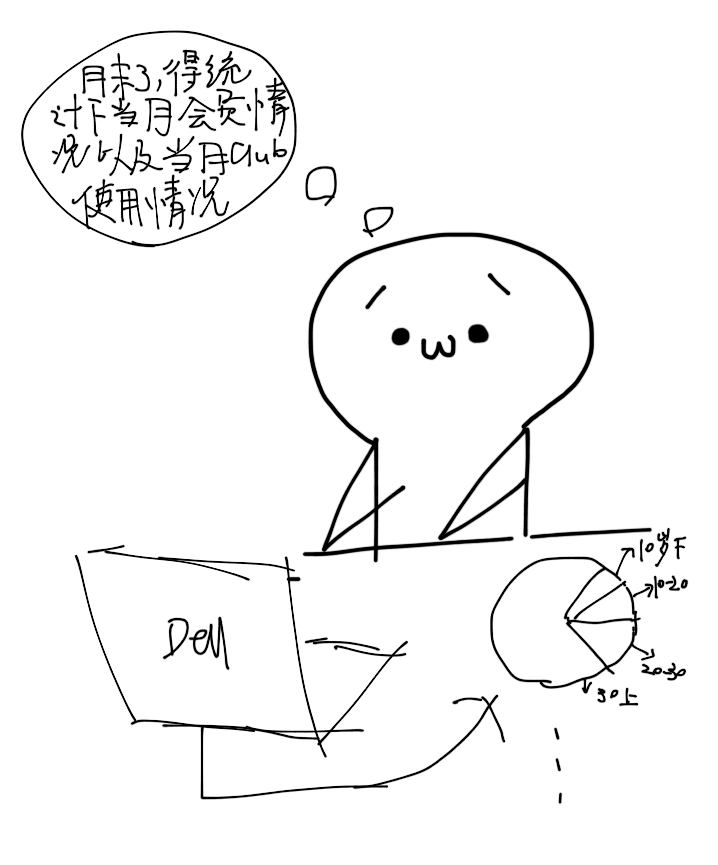 月末了,得统
计下当月会员情
况以及当月Club
使用情况
Dell
10岁下
10-20
20-30
30上